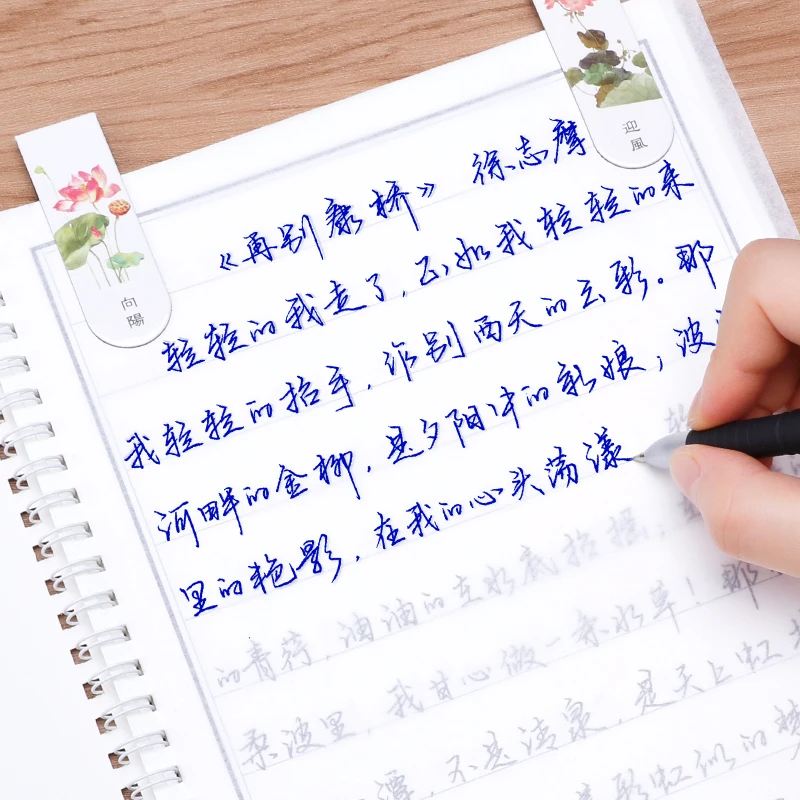 向陽
迎風
《再别康桥》 徐志摩
轻轻的我走了，正如我轻轻的来
我轻轻的招手，作别西天的云彩。那
河畔的金柳，是夕阳中的新娘；波
里的艳影，在我的心头荡漾
的青荇，油油的在水底招摇；
柔波里，我甘心做一条水草！那
潭，不是清泉，是天上虹
彩虹似的梦